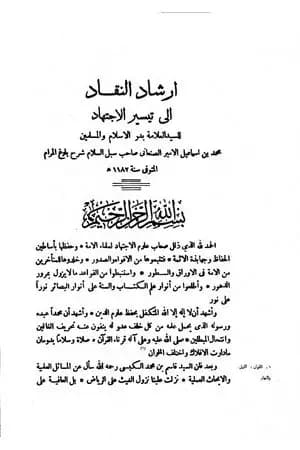 ارشاد النقاد
الى تيسير الاجتهاد
للسيد العلامة بدر الاسلام والمسلمين
محمد بن اسماعيل الامير الصنعاني صاحب سبل السلام شرح بلوغ المرام
المتوفى سنة ١١٨٢ هـ
بسم الله الرحمن الرحيم
الحمد لله الذي ذلل صعاب علوم الاجتهاد لعلماء الامة * وحفظها بأساطين
الحفاظ وجهابذة الائمة * فتتبعوها من الافواه والصدور * وخلدوها للمتأخرين
من الامة فى الاوراق والسطور * واستنبطوا من القواعد ما لا يزول بمرور
الدهور * وأطلعوا من أنوار علمى الكتاب والسنة على أنوار البصائر نوراً
على نور
وأشهد أن لا إله إلا الله المتكفل بحفظ علوم الدين * وأشهد أن محمداً عبده
ورسوله الذي يحمل علمه من كل خلف عدوله ينفون عنه تحريف الغالين
وانتحال المبطلين * صلى الله عليه وعلى آله قرناء القرآن * صلاة وسلاماً يدومان
مادارت الافلاك واختلف الملوان
وبعد فان السيد قاسم بن محمد الكبسي رحمه الله سأل عن المسائل العلمية
والابحاث العملية * نزلت علينا نزول الغيث على الرياض * بل العافية على